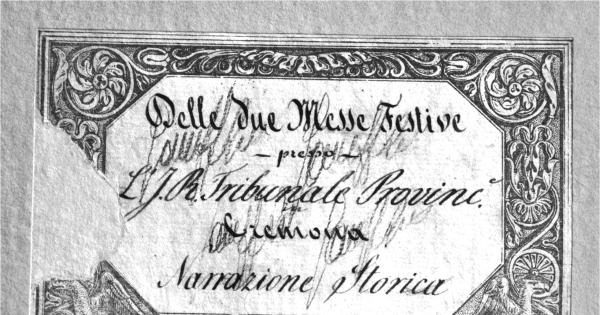 Delle due Messe Festive
– presso –
L'I. R. Tribunale Provinc.e
Cremona
Narrazione Storica